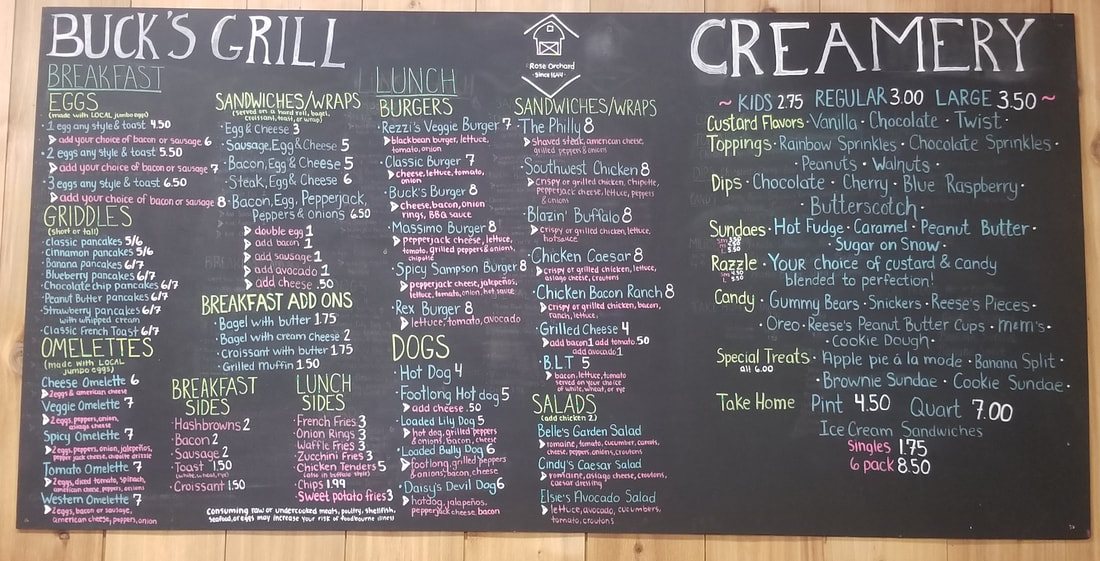 BUCK'S GRILL
BREAKFAST
EGGS
(made with LOCAL jumbo eggs)
·1 egg any style & toast 4.50
add your choice of bacon or sausage 6
·2 eggs any style & toast 5.50
add your choice of bacon or sausage 7
·3 eggs any style & toast 6.50
add your choice of bacon or sausage 8
GRIDDLES
(short or tall)
·classic pancakes 5/6
·Cinnamon pancakes 5/6
·Banana pancakes 6/7
·Blueberry pancakes 6/7
·Chocolate chip pancakes 6/7
·Peanut Butter pancakes 6/7
·Strawberry pancakes 6/7
with whipped cream
·Classic French Toast 6/7
OMELETTES
(made with LOCAL
jumbo eggs)
Cheese Omelette 6
2 eggs & american cheese
Veggie Omelette 7
2 eggs, peppers, onion,
asiago cheese
Spicy Omelette 7
2 eggs, peppers, onion, jalapeños,
pepper jack cheese, chipotle drizzle
Tomato Omelette 7
2 eggs, diced tomato, spinach,
american cheese, peppers, onions
Western Omelette 7
2 eggs, bacon or sausage,
american cheese, peppers, onion
SANDWICHES/WRAPS
(served on a hard roll, bagel,
croissant, toast, or wrap)
·Egg & Cheese 3
·Sausage, Egg & Cheese 5
·Bacon, Egg & Cheese 5
·Steak, Egg & Cheese 6
·Bacon, Egg, Pepperjack,
Peppers & onions 6.50
double egg 1
add bacon 1
add sausage 1
add avocado 1
add cheese .50
BREAKFAST ADD ONS
·Bagel with butter 1.75
·Bagel with cream cheese 2
·Croissant with butter 1.75
·Grilled muffin 1.50
BREAKFAST
SIDES
·Hashbrowns 2
·Bacon 2
·Sausage 2
·Toast 1.50
·Croissant 1.50
LUNCH
SIDES
·French Fries 3
·Onion Rings 3
·Waffle Fries 3
·Zucchini Fries 3
·Chicken Tenders 5
(also in buffalo style)
·Chips 1.99
·Sweet potato fries 3
Consuming raw or undercooked meats, poultry, shellfish,
seafood, or eggs may increase your risk of foodbourne illness
LUNCH
BURGERS
·Rezzi's Veggie Burger 7
blackbean burger, lettuce,
tomato, onion
·Classic Burger 7
cheese, lettuce, tomato,
onion
·Buck's Burger 8
Cheese, bacon, onion
rings, BBQ sauce
·Massimo Burger 8
pepperjack cheese, lettuce,
tomato, grilled peppers & onions,
chipotle
·Spicy Sampson Burger 8
pepperjack cheese, jalapeños,
lettuce, tomato, onion, hot sauce
·Rex Burger 8
lettuce, tomato, avocado
DOGS
·Hot Dog 4
·Footlong Hot dog 5
add cheese .50
·Loaded Lily Dog 5
hot dog, grilled peppers
& onions, bacon, cheese
·Loaded Bully Dog 6
footlong, grilled peppers
& onions, bacon, cheese
·Daisy's Devil Dog 6
hotdog, jalapeños,
pepperjack cheese, bacon
Rose Orchard
·Since 1644·
SANDWICHES/WRAPS
·The Philly 8
shaved steak, american cheese,
grilled peppers & onions
·Southwest Chicken 8
crispy or grilled chicken, chipotle,
pepperjack cheese, lettuce, peppers
& onions
·Blazin' Buffalo 8
crispy or grilled chicken, lettuce,
hotsauce
·Chicken Caesar 8
crispy or grilled chicken, lettuce,
asiago cheese, croutons
·Chicken Bacon Ranch 8
crispy or grilled chicken, bacon,
ranch, lettuce,
·Grilled Cheese 4
add bacon 1 add tomato .50
add avocado 1
·B.L.T 5
bacon, lettuce, tomato
served on your choice
of white, wheat, or rye
SALADS
(add chicken 2.)
Belle's Garden Salad
romaine, tomato, cucumber, carrots,
cheese, peppers, onions, croutons
Cindy's Caesar Salad
romaine, asiago cheese, croutons,
caesar dressing
Elsie's Avocado Salad
lettuce, avocado, cucumbers,
tomato, croutons
CREAMERY
~ KIDS 2.75 REGULAR 3.00 LARGE 3.50 ~
Custard Flavors · Vanilla · Chocolate · Twist ·
Toppings · Rainbow Sprinkles · Chocolate Sprinkles ·
Peanuts · Walnuts ·
Dips · Chocolate · Cherry · Blue Raspberry ·
· Butterscotch ·
Sundaes · Hot Fudge · Caramel · Peanut Butter ·
· Sugar on Snow ·
Razzle · Your choice of custard & candy
blended to perfection!
Candy · Gummy Bears · Snickers · Reese's Pieces ·
· Oreo · Reese's Peanut Butter Cups · m&m's ·
· Cookie Dough ·
Special Treats · Apple pie á la mode · Banana Split ·
all 6.00
· Brownie Sundae · Cookie Sundae ·
Take Home Pint 4.50 Quart 7.00
Ice Cream Sandwiches
Singles 1.75
6 pack 8.50